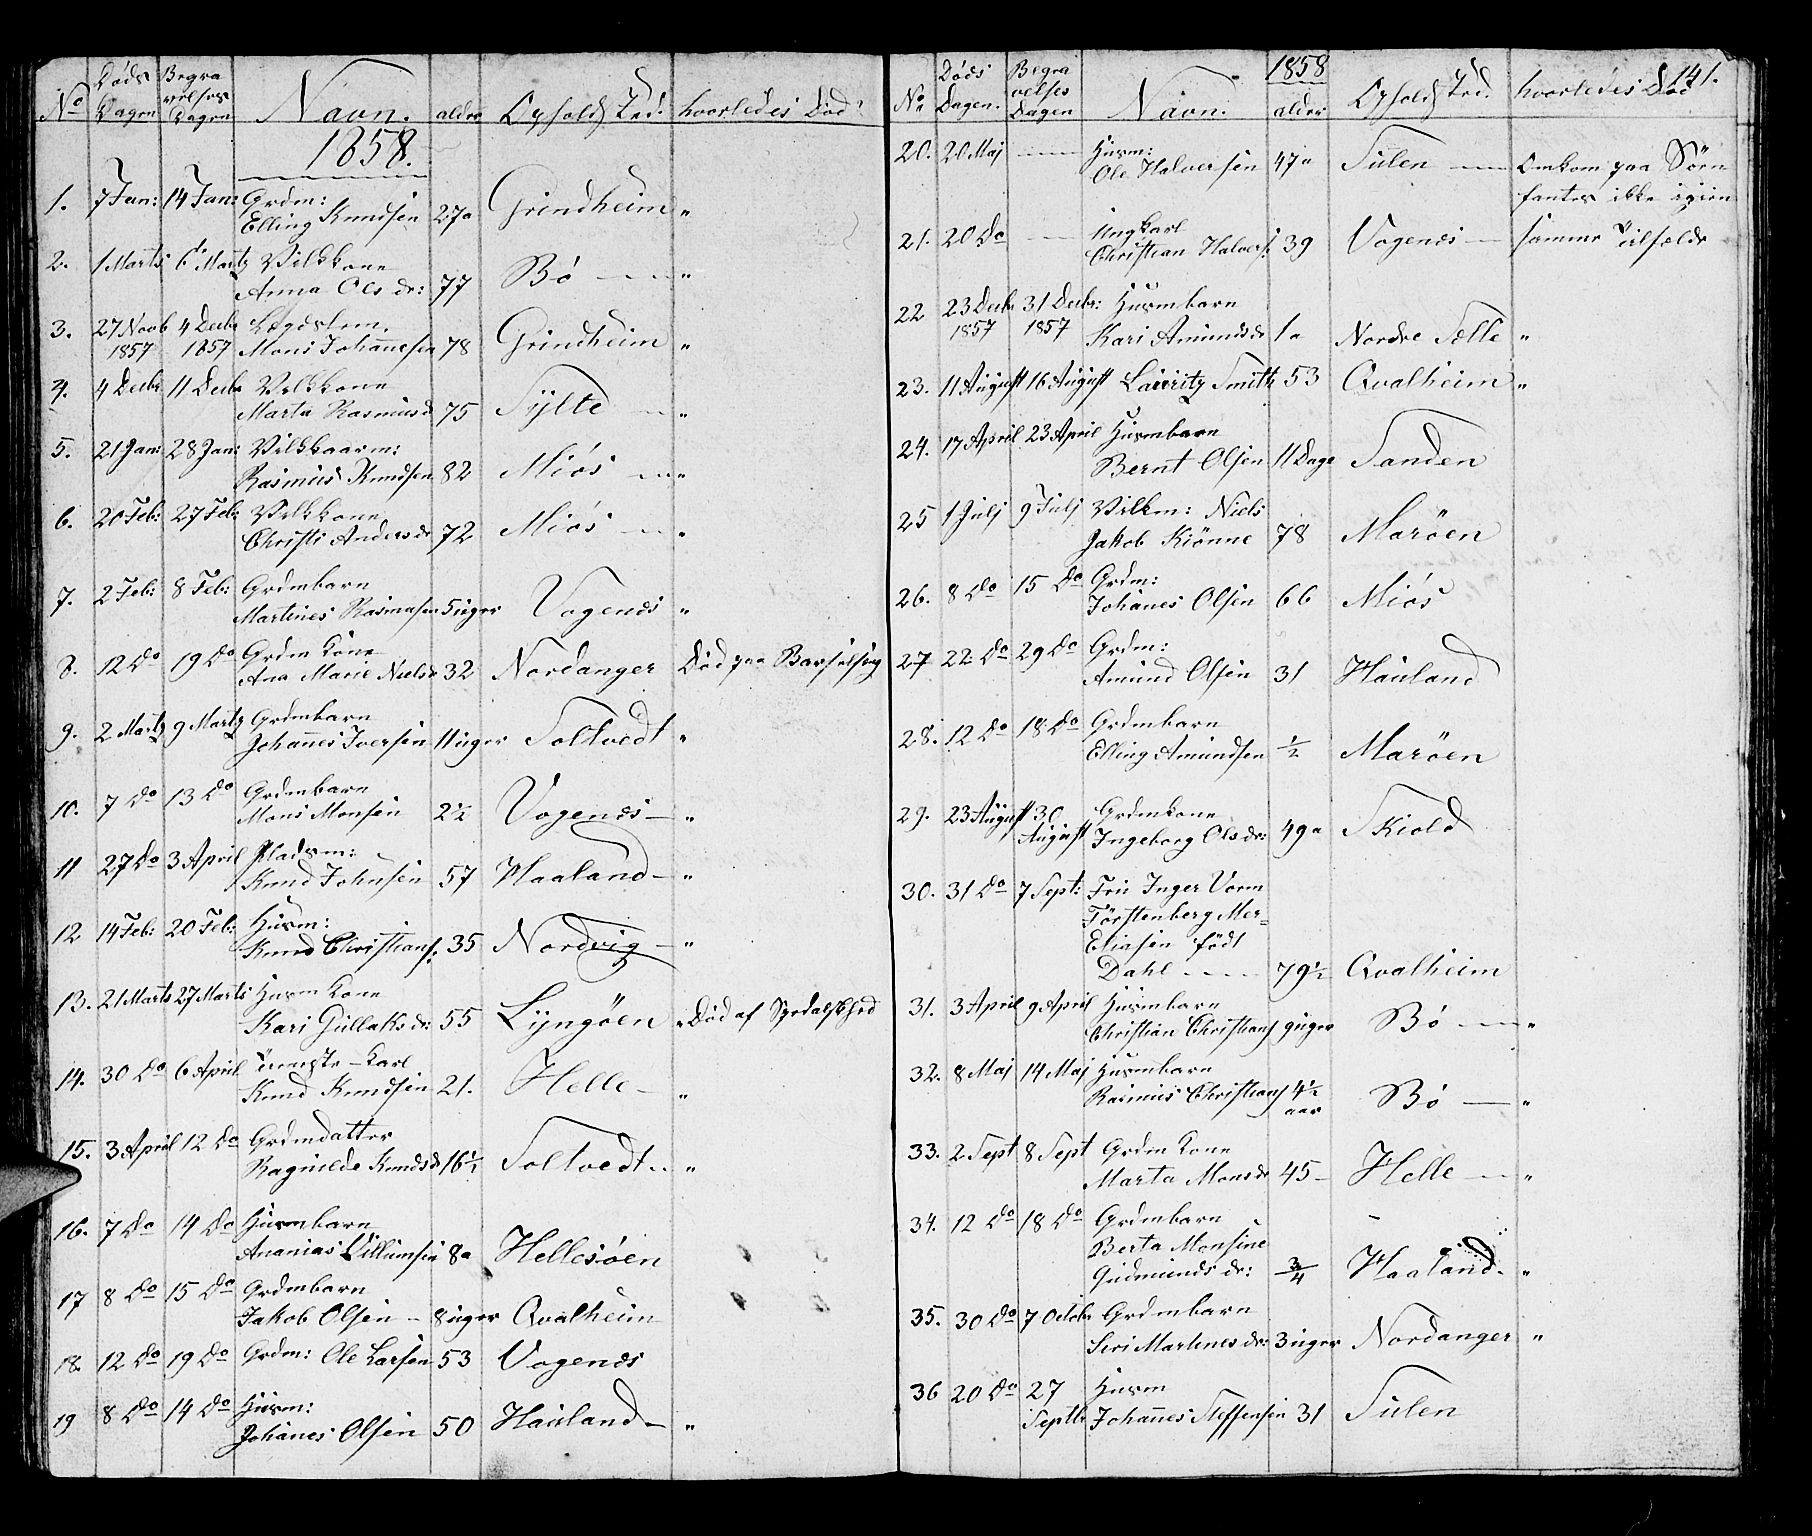 No Døds Dagen Begravelses Dagen Navn. alder Opholds Sted. hvorledes Død
1858.
1. 7 Jan: 14 Jan: Grdm:
Elling Knudsen 27a Grindheim "
2. 1 Marts 6te Martz Vilkkone
Anna Ols dr: 77 Bö "
3. 27 Novb 4 Decbr Lægdslem.
1857 1857 Mons Johannesen 78 Grindheim "
4. 4 Decbr 11 Decbr Vilkkone
Marta Rasmusd 75 Sylte "
5. 21 Jan: 28 Jan: Vilkkaarm:
Rasmus Knudsen 82 Miös "
6. 20 Feb: 27 Feb: Vilkkone
Christi Andersdr 72 Miös "
7. 2 Feb: 8 Feb: Grdmbarn
Martines Rasmusen 5 uger Vogenæs "
8. 12 Do 19 Do Grdm kone
Ana Marie Nielsdr 32 Nordanger Död paa Barselseng
9. 2 Martz 9 Martz Grdmbarn
Johannes Iversen 11 uger Soltvedt "
10. 7 Do 13 Do Grdmbarn
Mons Monsen 2½ Vogenæs "
11 27 Do 3 April Pladsm:
Knud Johnsen 57 Haaland "
12 14 Feb: 20 Feb: Husm:
Knud Christians: 35 Nordvig "
13. 21 Marts 27 Marts Husm Kone
Kari Gullaksdr: 55 Lyngöen " Död af Spedalskhed
14. 30 Do 6 April Tienste-Karl
Knud Knudsen 21. Helle "
15. 3 April 12 Do Grdmdatter
Ragnilde Knudsd 16½ Soltvedt "
16. 7 Do 14 Do Husmbarn
Ananias Villumsen 8a Hellesöen
17 8 Do 15 Do Grdmbarn
Jakob Olsen 8 uger Qvalheim
18. 12 Do 19 Do Grdm: Ole Larsen 53 Vogenæs
19 8 Do 14 Do Husm:
Johanes Olsen 50 Hauland "
1858 141.
No Døds Dagen. Begravelses Dagen Navn. alder Opholds Sted. hvorledes Död
20. 20 Maj Husm:
Ole Halversen 47a Sulen Omkom paa Söen
fantes ikke igien
21. 20 Do Ungkarl
Christian Halvers: 39 Vogenæs samme Tilfælde
22 23 Decbr 31 Decbr: Husmbarn
1857 1857 Kari Amundsdr 1a Nordre Sælle "
23. 11 August 16 August Lauritz Smith 53 Qvalheim "
24. 17 April 23 April Husmbarn
Bernt Olsen 11 Dage Sanden
25 1 Julj 9 Julj Vilkm: Niels
Jakob Kiönne 78 Maröen
26. 8 Do 15 Do Grdm:
Johanes Olsen 66 Miös
27 22 Do 29 Do Grdm:
Amund Olsen 31 Hauland
28. 12 Do 18 Do Grdmbarn
Elling Amundsen ½ Maröen
29. 23 August 30 Grdmkone
August Ingeborg Olsdr: 49a Skiold
30. 31 Do 7 Sept: Fru Inger Vorm
Förstenberg Mer-
Eliasen född
Dahl 79½ Qvalheim
31. 3 April 9 April Husmbarn
Christian Christians 9 uger Bö "
32. 8 Maj 14 Maj Husmbarn
Rasmus Christians 4½
aar Bö "
33. 2 Sept 8 Sept Grdm Kone
Marta Monsdr 45 Helle "
34. 12 Do 18 Do Grdmbarn
Berta Monsine
Gudmunds dr: ¾ Haaland "
35. 30 Do 7 Octobr Grdmbarn
Siri Martinesdr: 3 uger Nordanger "
36 20 Do 27 Husm
Septbr Johannes Steffensen 31 Sulen